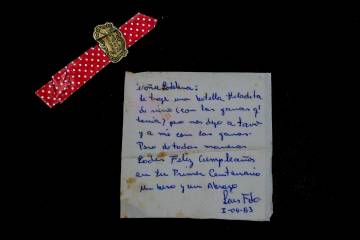 Doña Loldina:
te traje una botella Heladita
de vino (con las ganas q'
tenía) pero nos dejo a tavo
y a mí con las ganas.
Pero de todas maneras
Lodes Feliz Cumpleaños
en tu Primer Centenario
un beso y un Abrazo
Luis Fdo
I-04-83